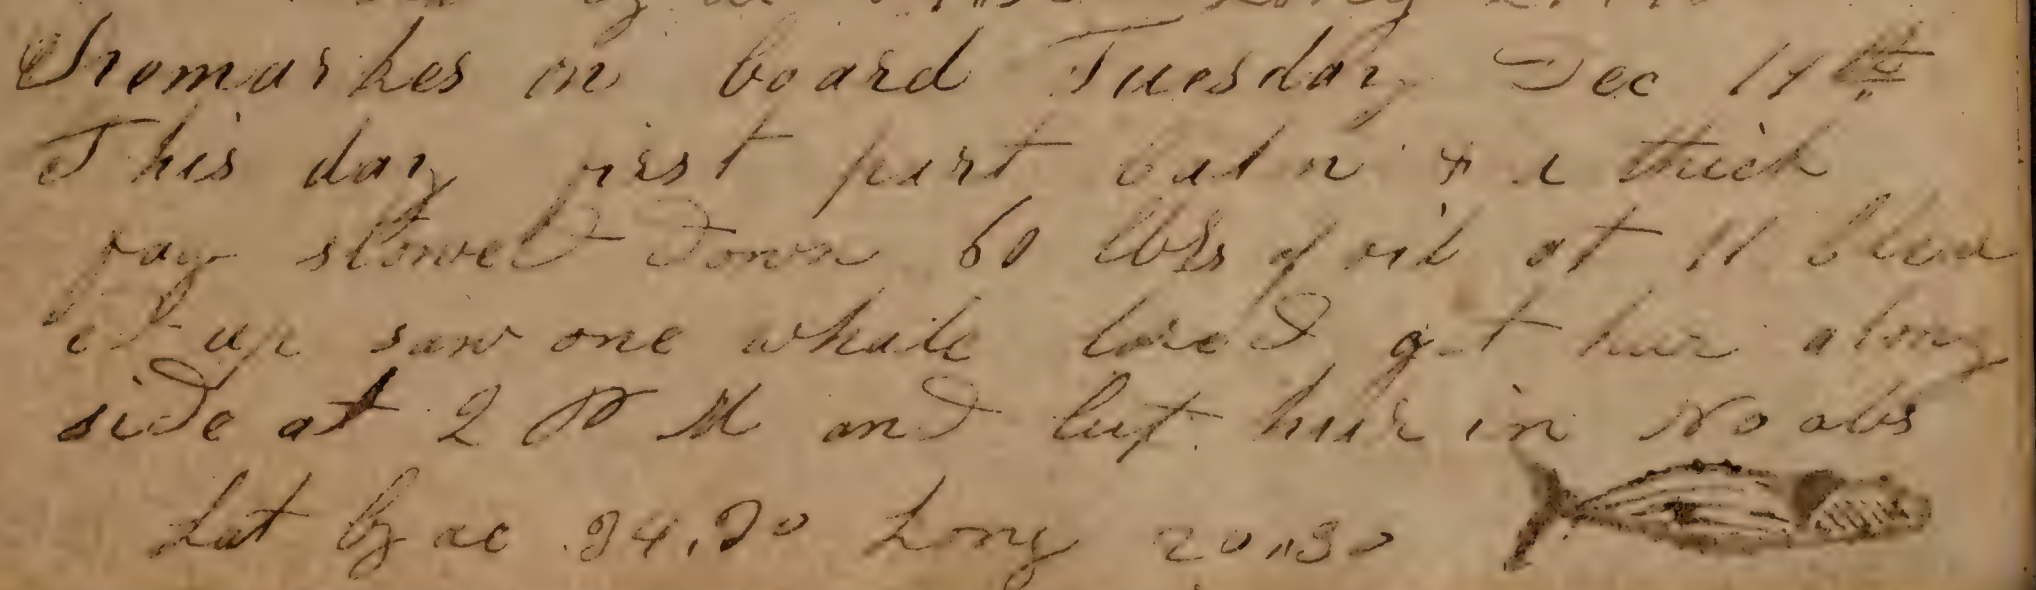 Remarkes on board Tuesday Dec 14th
This day first part calm & a thick
fog stowed down 60 bbls of oil at 11
it up saw one whale lored got her along
side at 2 P M and cut her in No obs
Lat by ac 34,20 Long 20,,30